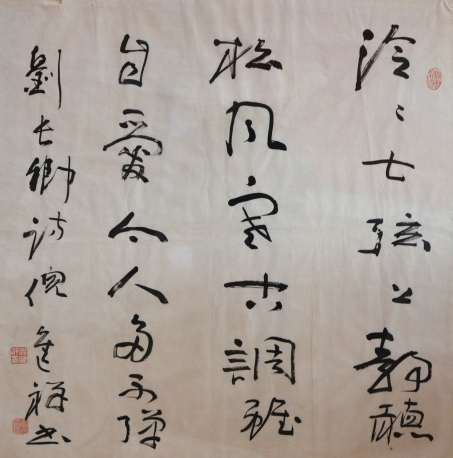 泠〻七弦上静聽
松風寒古調雖
自愛今人多不彈
劉長卿詩倪進祥書